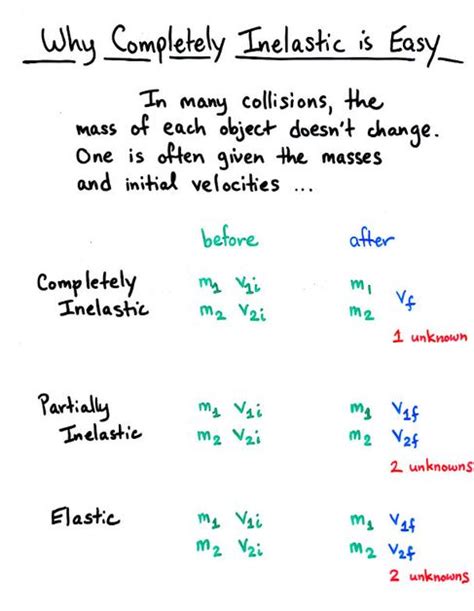 Why Completely Inelastic is Easy
In many collisions, the
mass of each object doesn't change.
One is often given the masses
and initial velocities ...
before after
Completely m₁ v₁ᵢ m₁
Inelastic m₂ v₂ᵢ m₂ vf
1 unknown
Partially m₁ v₁ᵢ m₁ v₁f
Inelastic m₂ v₂ᵢ m₂ v₂f
2 unknowns
Elastic m₁ v₁ᵢ m₁ v₁f
m₂ v₂ᵢ m₂ v₂f
2 unknowns